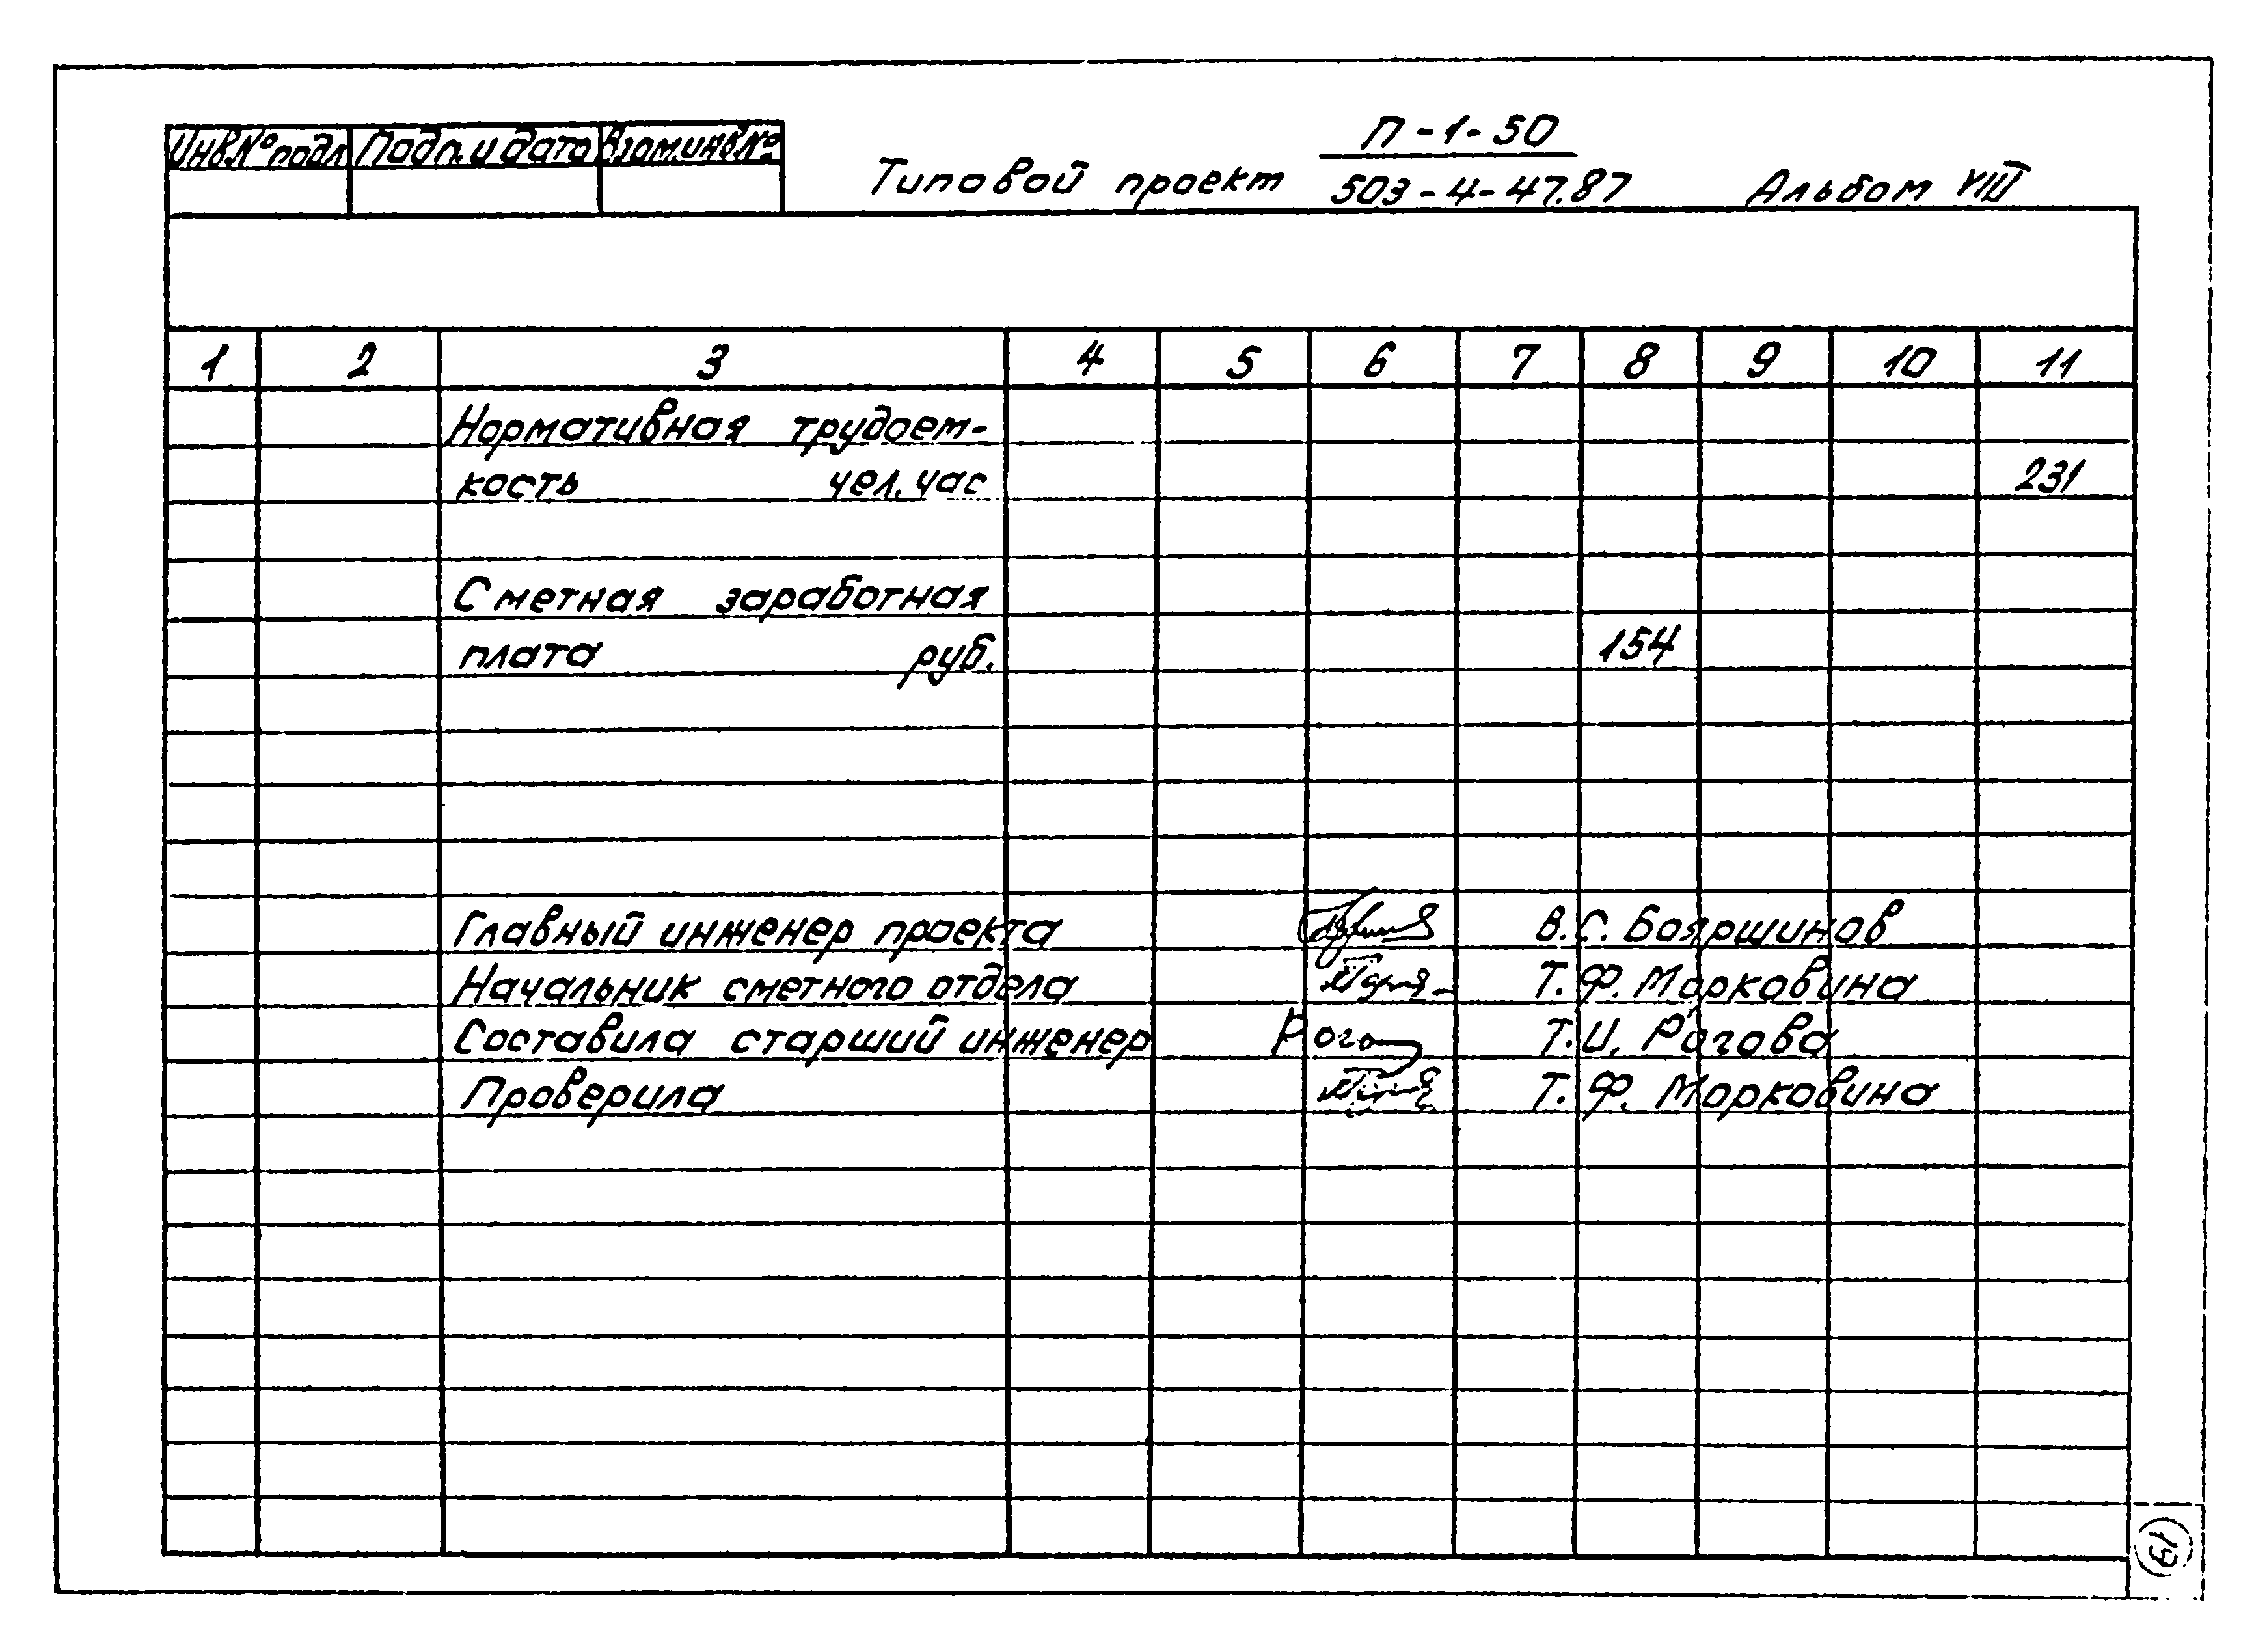 Инв.№ подл Подп. и дата Взам.инв№
П-1-50
Типовой проект 503-4-47.87 Альбом VIII
1 2 3 4 5 6 7 8 9 10 11
Нормативная трудоем-
кость чел.час 231
Сметная заработная
плата руб. 154
Главный инженер проекта В.С. Бояршинов
Начальник сметного отдела Т.Ф. Морковина
Составила старший инженер Т.И. Рогова
Проверила Т.Ф. Морковина